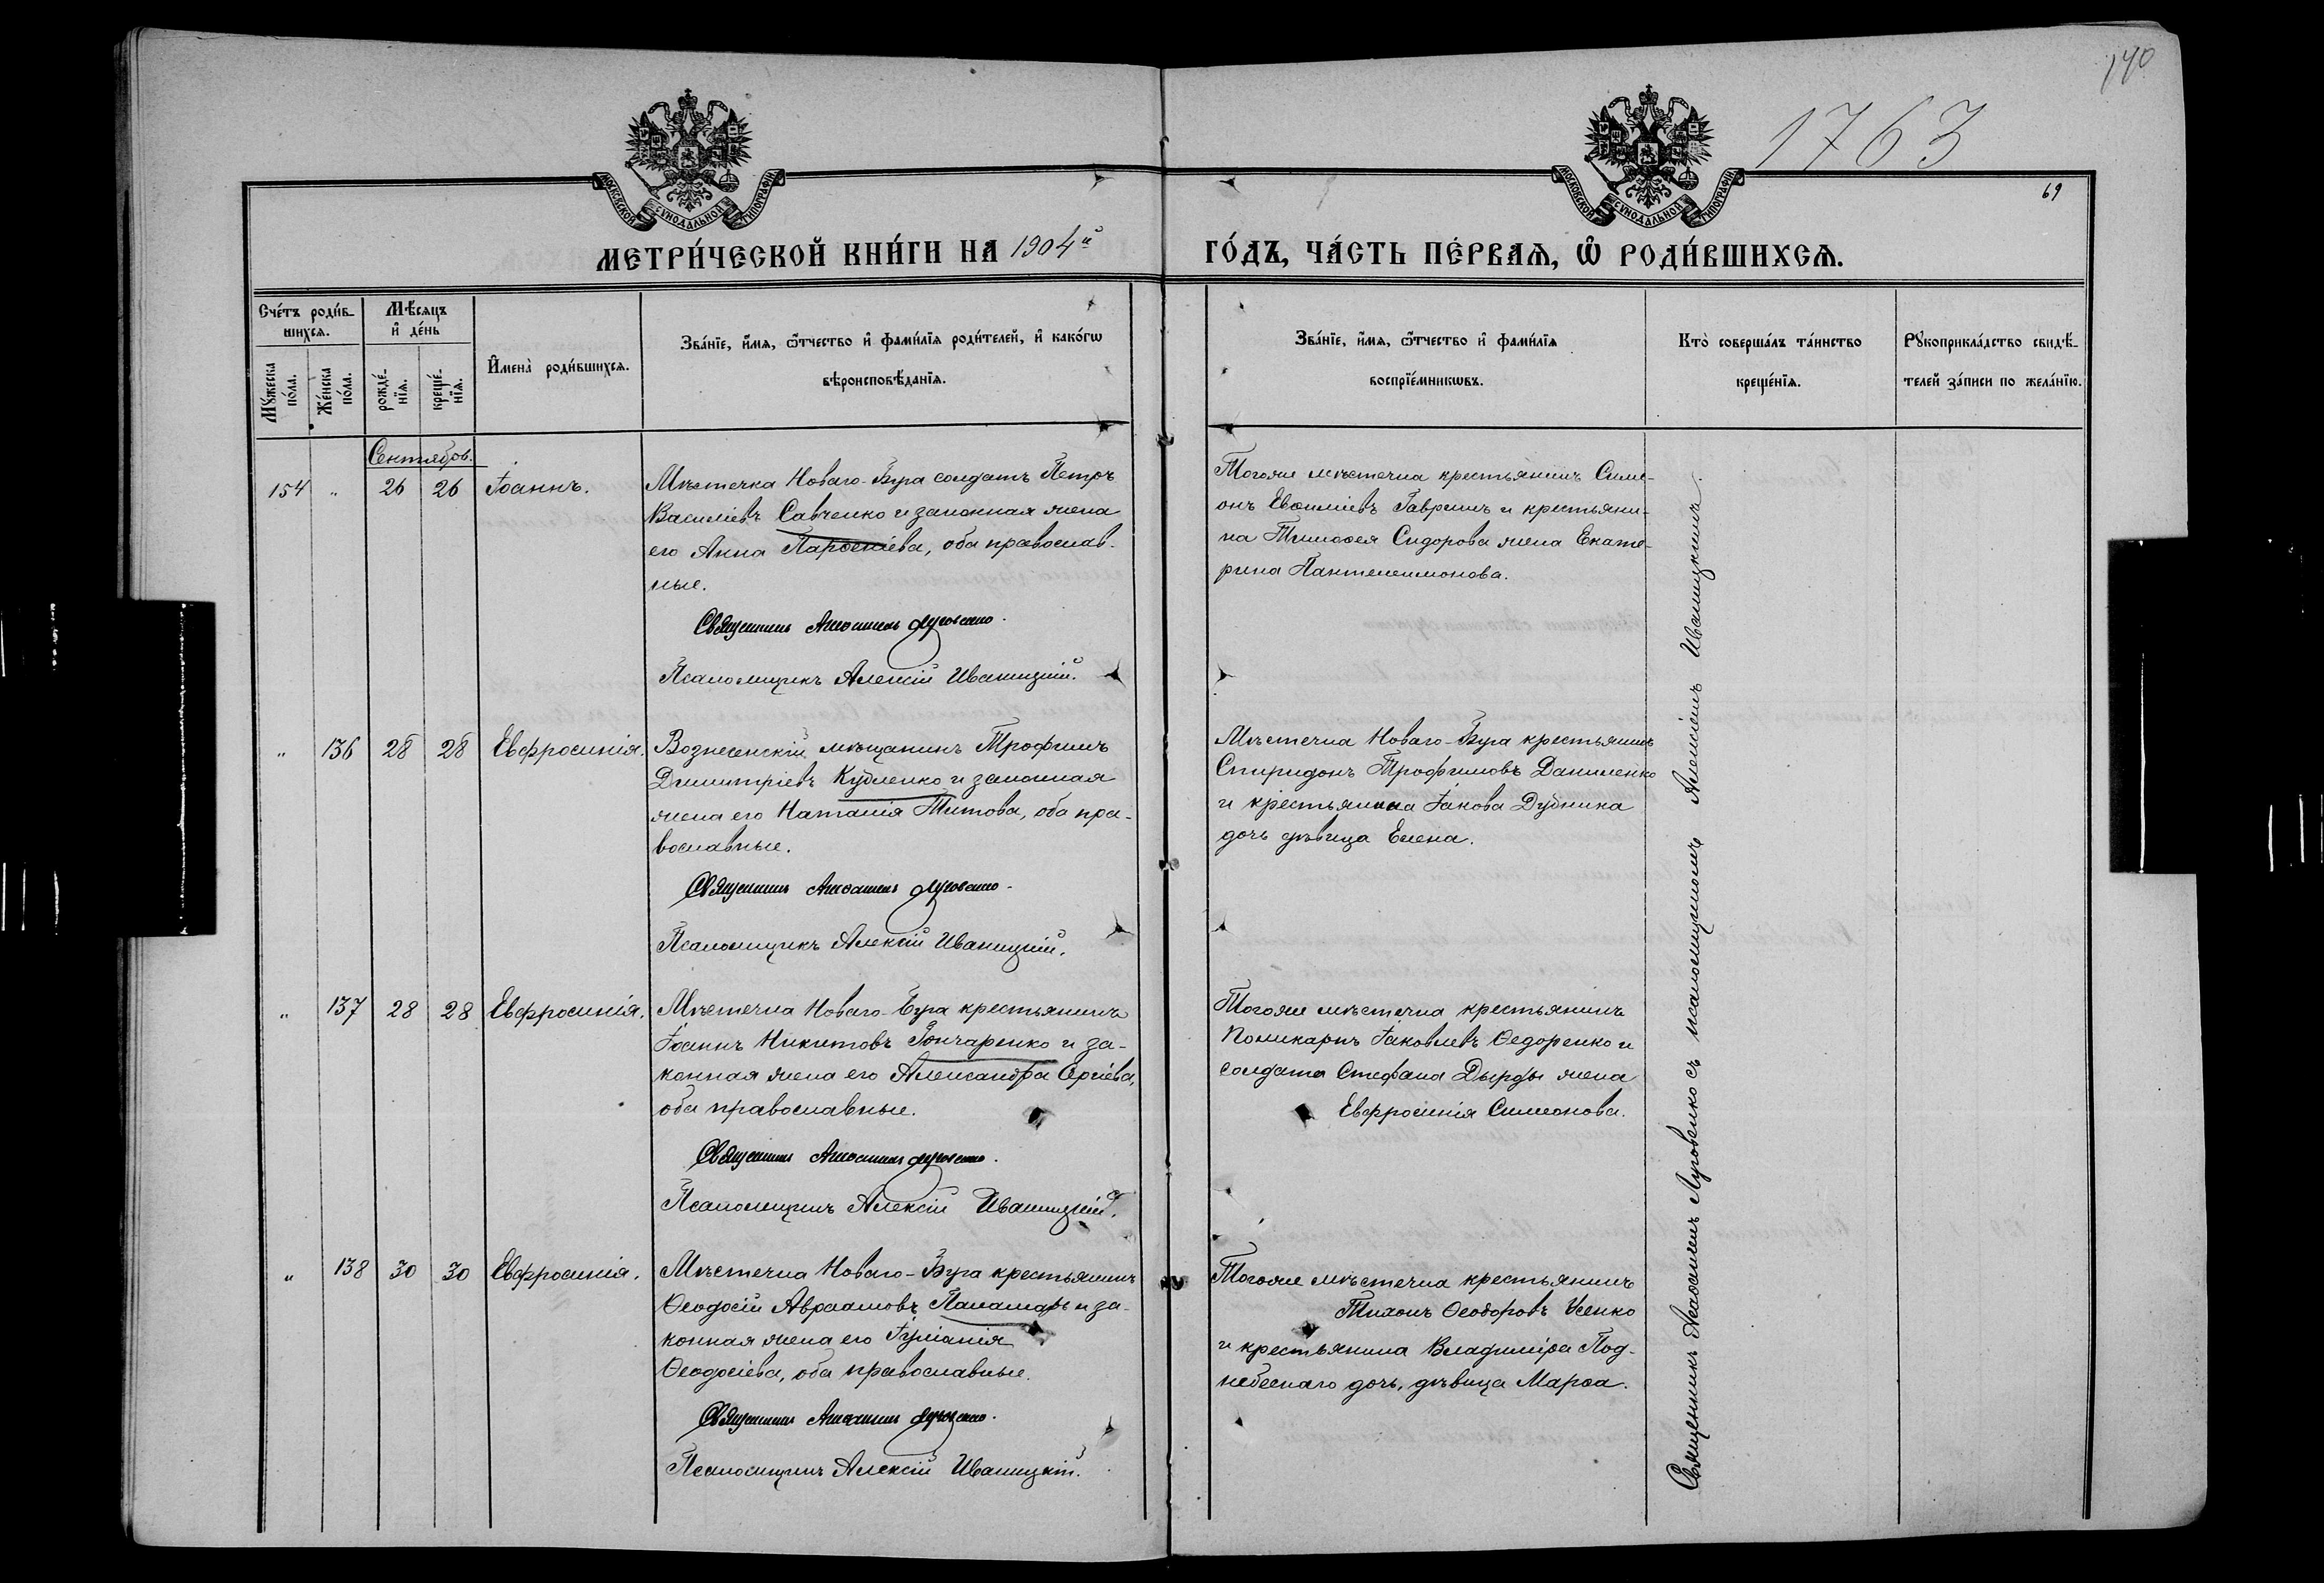 140
1763
69
МОСКОВСКОЙ СѴНОДАЛЬНОЙ ТИПОГРАФІИ
МОСКОВСКОЙ СѴНОДАЛЬНОЙ ТИПОГРАФІИ
МЕТРИ́ЧЕСКОЙ КНИ́ГИ НА 1904й ГО́ДЪ, ЧА́СТЬ ПЕ́РВАѦ, Ѡ҆ РОДИ́ВШИХСѦ.
Сче́тъ роди́в-
шихсѧ.
Мꙋ́жеска
по́ла.
Же́нска
по́ла.
Мѣ́сѧцъ
и҆ де́нь
рожде́-
нїѧ.
креще́-
нїѧ.
И҆мена̀ роди́вшихсѧ.
Зва́нїе, и҆́мѧ, ѻ҆́тчество и҆ фами́лїѧ роди́телей, и҆ како́гѡ
вѣроисповѣ́данїѧ.
Зва́нїе, и҆́мѧ, ѻ҆́тчество и҆ фами́лїѧ
воспрїе́мникѡвъ.
Кто̀ соверша́лъ та́инство
креще́нїѧ.
Рꙋкоприкла́дство свидѣ́-
телей за́писи по жела́нїю.
Сентябрь.
154 " 26 26 Іоаннъ.
Мѣстечка Новаго-Буга солдатъ Петръ
Василіевъ Савченко и законная жена
его Анна Парѳеніева, оба православ-
ные.
Священникъ Аѳанасій Луговенко.
Псаломщикъ Алексій Иваницкій.
Тогоже мѣстечка крестьянинъ Симе-
онъ Евѳиміевъ Гавришъ и крестьяни-
на Тимоѳея Сидорова жена Екате-
рина Пантелеимонова.
" 136 28 28 Евфросинія.
Вознесенскій мѣщанинъ Трофимъ
Димитріевъ Кубленко и законная
жена его Наталія Титова, оба пра-
вославные.
Священникъ Луговенко.
Псаломщикъ Алексій Иваницкій.
Мѣстечка Новаго-Буга крестьянинъ
Спиридонъ Трофимовъ Даниленко
и крестьянина Іакова Дубника
дочь дѣвица Елена.
" 137 28 28 Евфросинія.
Мѣстечка Новаго-Буга крестьянинъ
Іоаннъ Никитовъ Гончаренко и за-
конная жена его Александра Сергіева,
оба православные.
Священникъ Луговенко.
Псаломщикъ Алексій Иваницкій.
Тогоже мѣстечка крестьянинъ
Поликарпъ Іаковлевъ Ѳедоренко и
солдата Стефана Дырды жена
Евфросинія Симеонова.
" 138 30 30 Евфросинія.
Мѣстечка Новаго-Буга крестьянинъ
Ѳеодосій Авраамовъ Паламарь и за-
конная жена его Іуліанія
Ѳеодосіева, оба православные.
Священникъ Луговенко.
Псаломщикъ Алексій Иваницкій.
Тогоже мѣстечка крестьянинъ
Тихонъ Ѳеодоровъ Усенко
и крестьянина Владиміра Под-
небеснаго дочь, дѣвица Марѳа.
Священникъ Луговенко съ псаломщикомъ Алексіемъ Иваницкимъ.